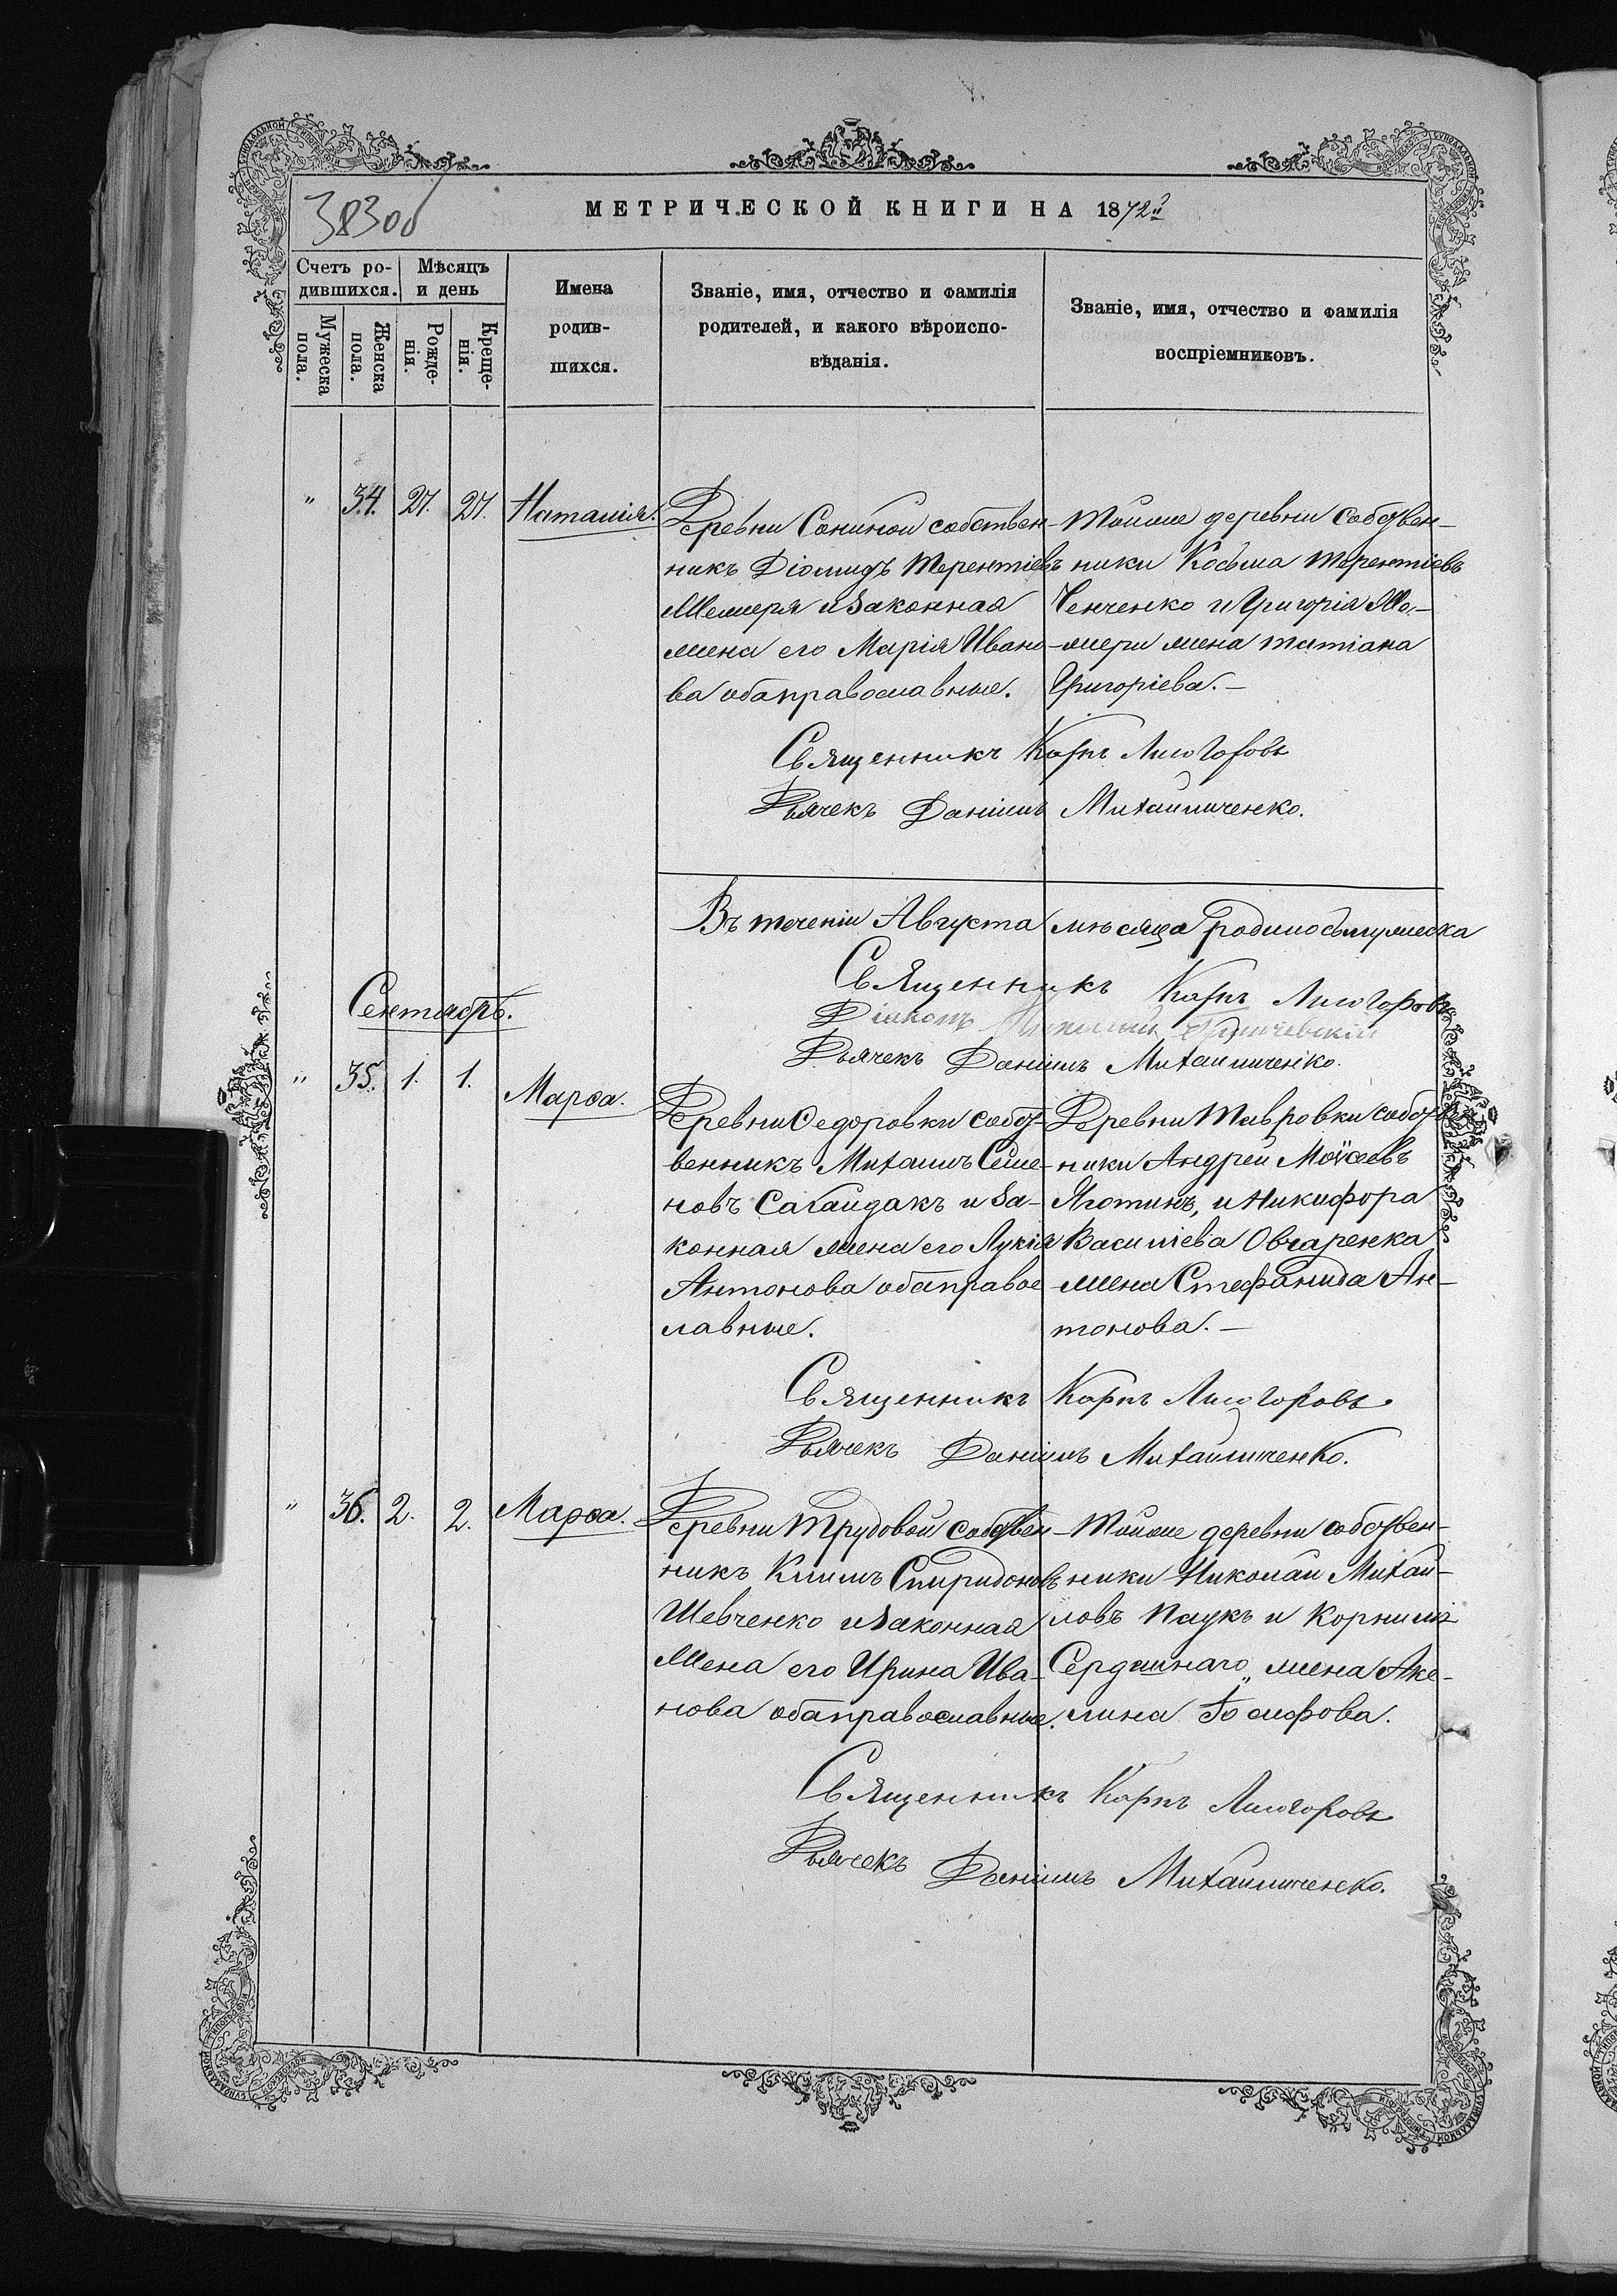 383об
МЕТРИЧЕСКОЙ КНИГИ НА 1872й
Счетъ ро-
дившихся.
Мѣсяцъ
и день
Мужеска
пола.
Женска
пола.
Рожде-
нія.
Креще-
нія.
Имена
родив-
шихся.
Званіе, имя, отчество и фамилія
родителей, и какого вѣроиспо-
вѣданія.
Званіе, имя, отчество и фамилія
воспріемниковъ.
" 34. 27. 27. Наталія.
Деревни Сониной собствен-
никъ Діомидъ Терентіевъ
и законная
жена его Марія Ивано-
ва оба православные.
Тойже деревни собствен-
ники Косьма Терентіевъ
Ченченко и Григорія
жена Татіана
Григоріева.
Священникъ Карпъ Лисогоровъ
Дьячекъ Даніилъ Михайличенко.
Въ теченіи Августа мѣсяца родилось мужеска
Священникъ Карпъ Лисогоровъ
Діаконъ
Дьячекъ Даніилъ Михайличенко.
Сентябрь.
" 35. 1. 1. Марѳа.
Деревни Ѳедоровки собст-
венникъ Михаилъ Семе-
новъ Сагайдакъ и за-
конная жена его Лукія
Антонова оба правос-
лавные.
Деревни Тавровки собствен-
ники Андрей Моѵсеевъ
Яготинъ, и Никифора
Василіева Овчаренка
жена Стефанида Ан-
тонова.
Священникъ Карпъ Лисогоровъ.
Дьячекъ Даніилъ Михайличенко.
" 36. 2. 2. Марѳа.
Деревни Трудовой собствен-
никъ Климъ Спиридоновъ
Шевченко и законная
жена его Ирина Ива-
нова оба православные.
Тойже деревни собствен-
ники Николай Михай-
ловъ Паукъ и Корнилія
Сердешнаго жена Аке-
лина Іосифова.
Священникъ Карпъ Лисогоровъ
Дьячекъ Даніилъ Михайличенко.